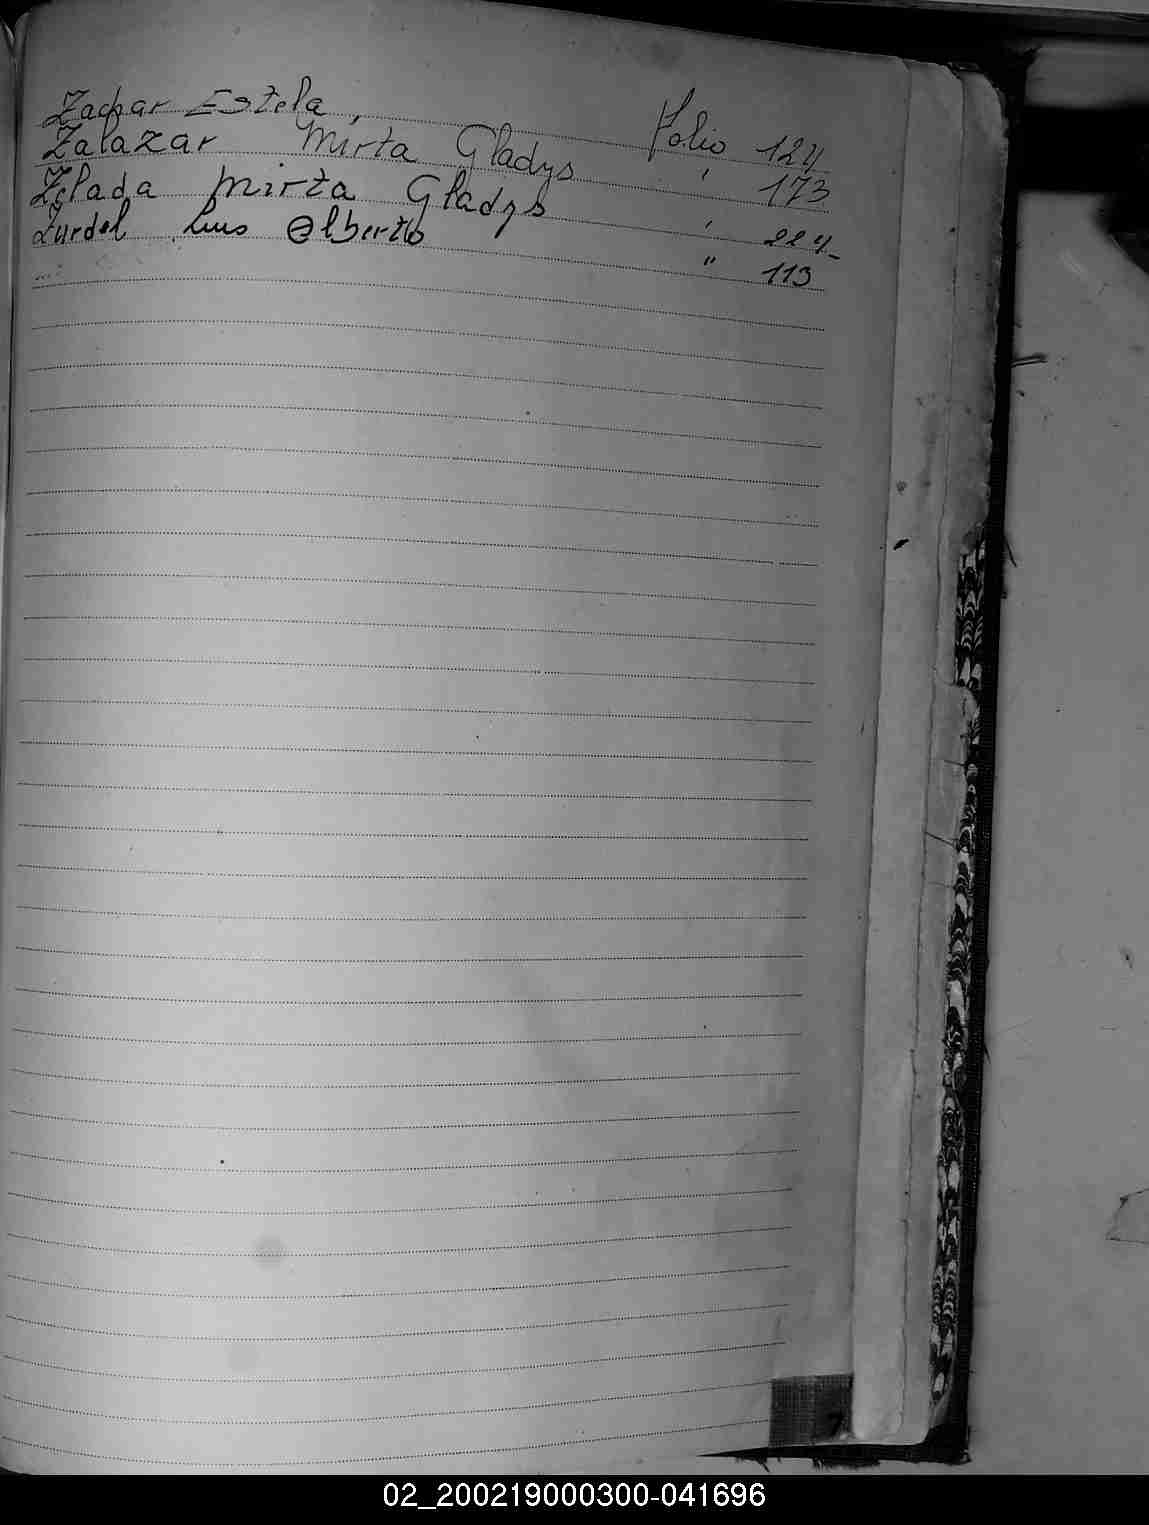 Zachar Estela, Folio 124
Zalazar Mirta Gladys " 173
Zelada Mirta Gladys " 224-
Zurdel Luis Alberto " 113
Z
02_200219000300-041696